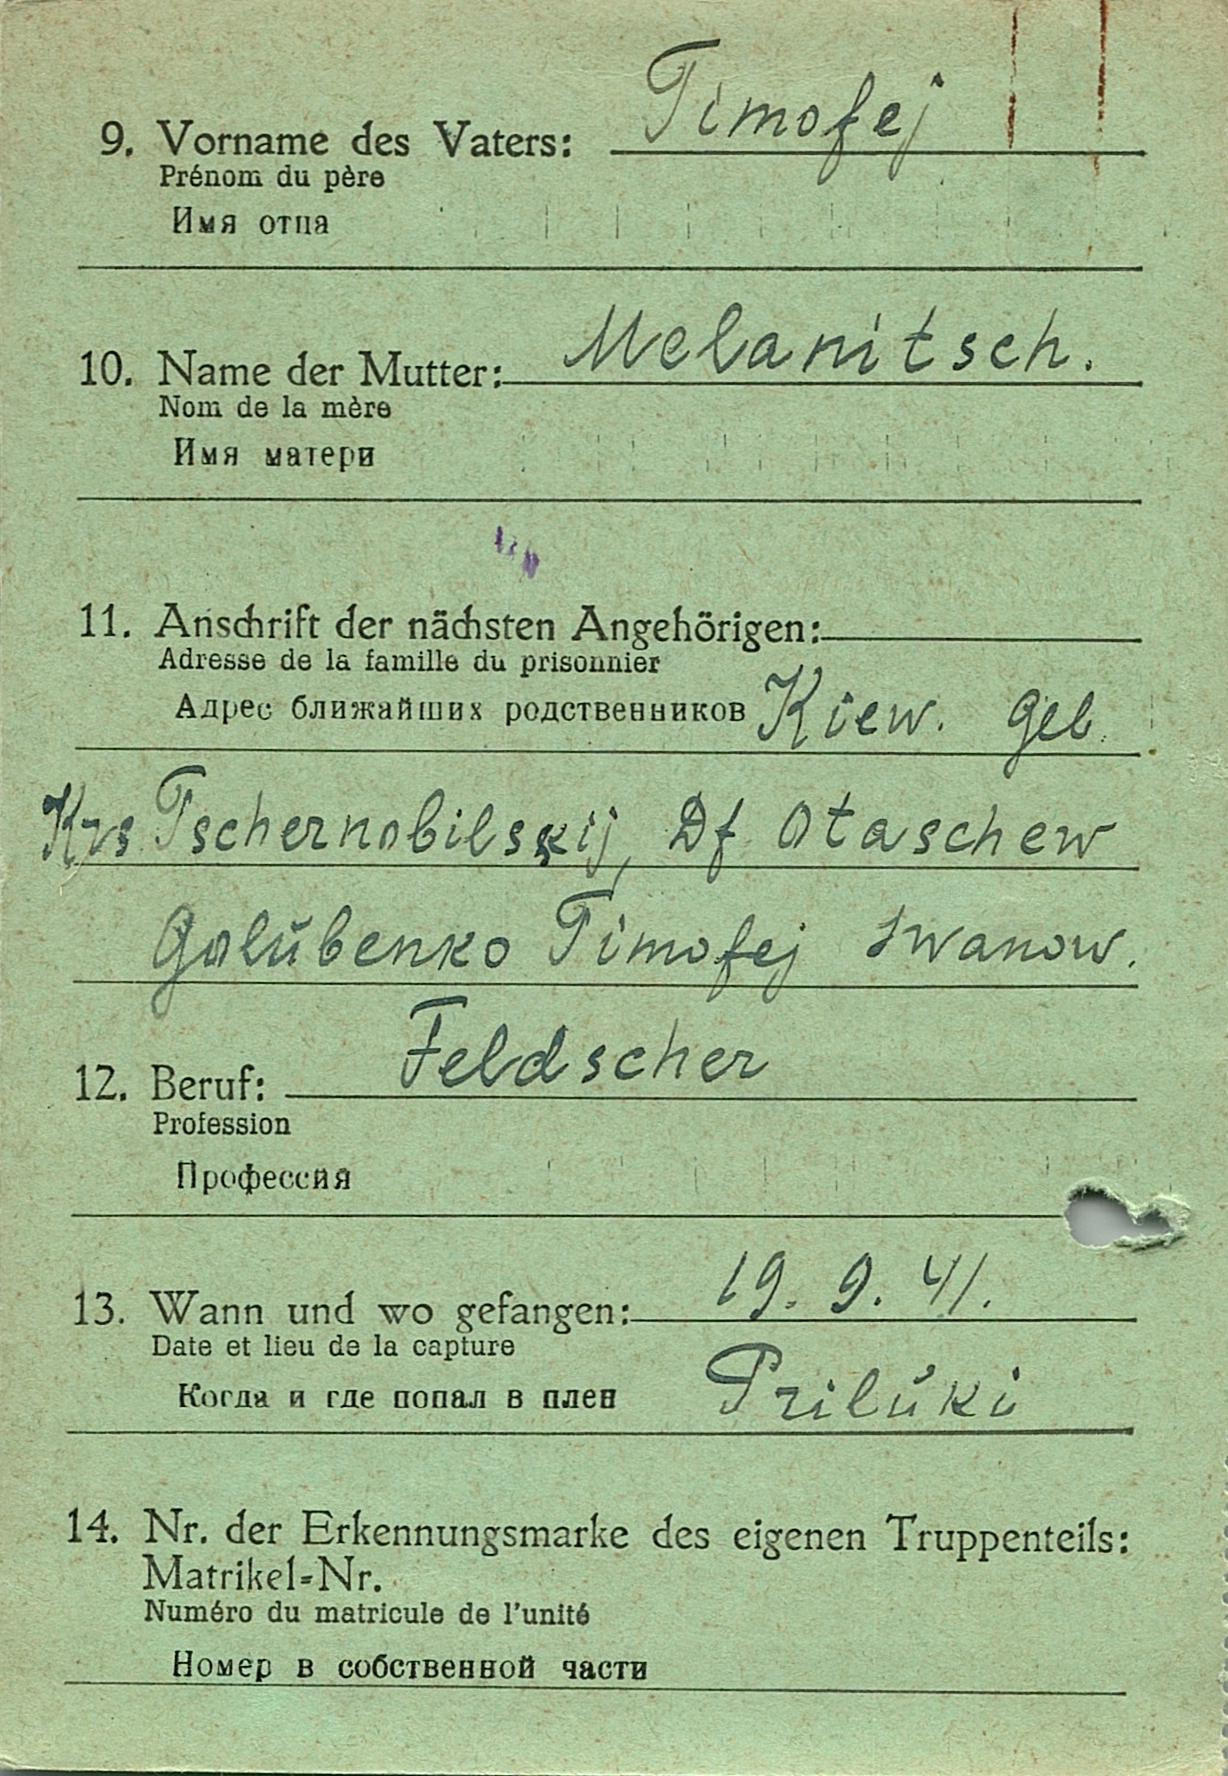 9. Vorname des Vaters: Timofej
Prénom du père
Имя отца
10. Name der Mutter: Melanitsch.
Nom de la mère
Имя матери
11. Anschrift der nächsten Angehörigen:
Adresse de la famille du prisonnier
Адрес ближайших родственников Kiew. Geb.
Krs Tschernobilskij, Df Otaschew
Golubenko Timofej Iwanow.
12. Beruf: Feldscher
Profession
Профессия
13. Wann und wo gefangen: 19. 9. 41.
Date et lieu de la capture
Когда и где попал в плен Priluki
14. Nr. der Erkennungsmarke des eigenen Truppenteils:
Matrikel-Nr.
Numéro du matricule de l'unité
Номер в собственной части